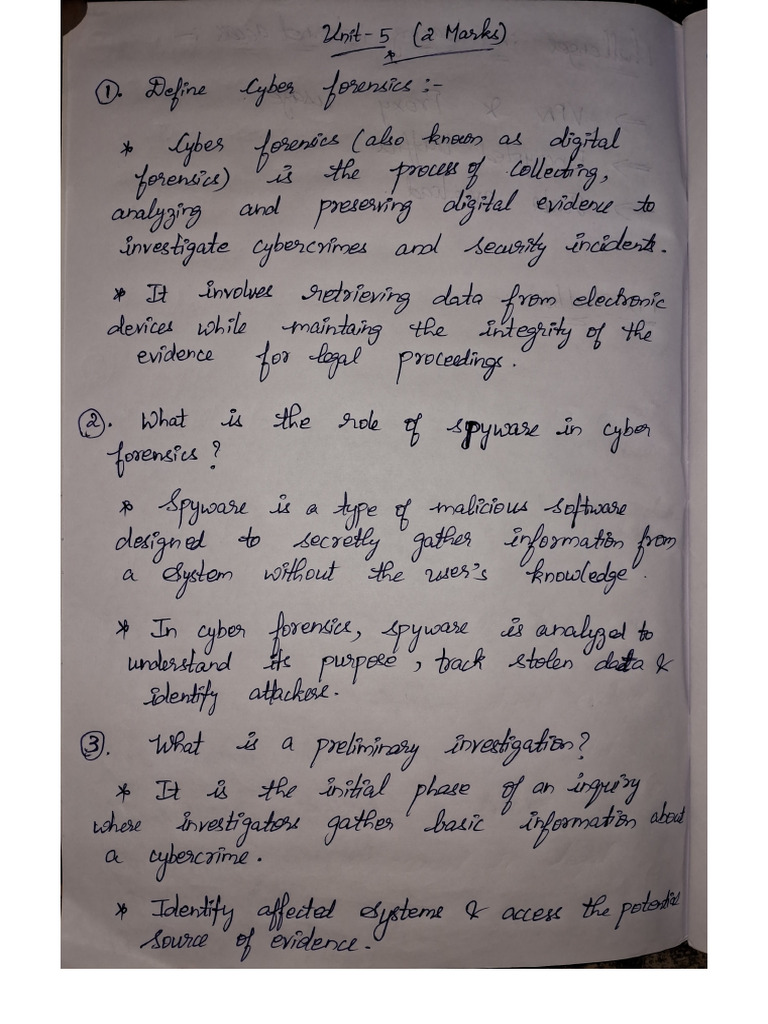 Unit-5 (2 Marks)
①. Define Cyber forensics :-
* Cyber forensics (also known as digital
forensics) is the process of collecting,
analyzing and preserving digital evidence to
investigate cybercrimes and security incidents.
* It involves retrieving data from electronic
devices while maintaing the integrity of the
evidence for legal proceedings.
②. What is the role of spyware in cyber
forensics?
* Spyware is a type of malicious software
designed to secretly gather information from
a system without the user's knowledge.
* In cyber forensics, spyware is analyzed to
understand its purpose, track stolen data &
identify attackers.
③. What is a preliminary investigation?
* It is the initial phase of an inquiry
where investigators gather basic information about
a cybercrime.
* Identify affected systems & access the potential
source of evidence.